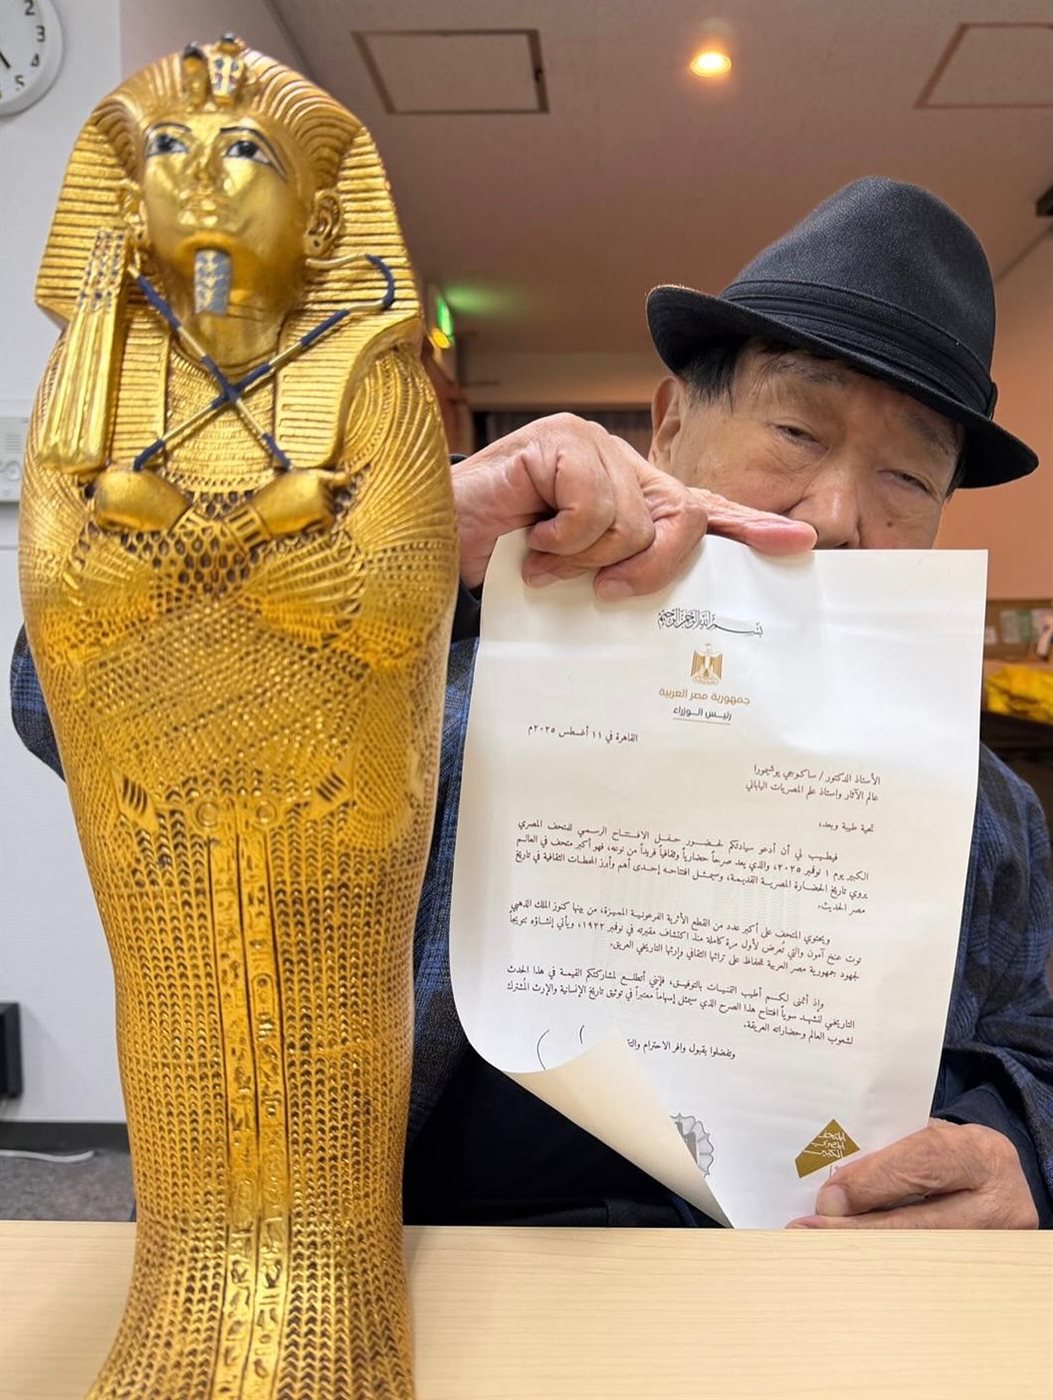 2
3
4
5
بسم الله الرحمن الرحيم
جمهورية مصر العربية
رئيس الوزراء
القاهرة في ١١ أغسطس ٢٠٢٥م
الأستاذ الدكتور / ساكوجي يوشيمورا
عالم الآثار وأستاذ علم المصريات الياباني
تحية طيبة وبعد،
فيطيب لي أن أدعو سيادتكم لحضور حفل الافتتاح الرسمي للمتحف المصري
الكبير يوم ١ نوفمبر ٢٠٢٥، والذي يعد صرحاً حضارياً وثقافياً فريداً من نوعه، فهو أكبر متحف في العالم
يروي تاريخ الحضارة المصرية القديمة، وسيمثل افتتاحه إحدى أهم وأبرز المحطات الثقافية في تاريخ
مصر الحديث.
ويحتوي المتحف على أكبر عدد من القطع الأثرية الفرعونية المميزة، من بينها كنوز الملك الذهبي
توت عنخ آمون والتي تُعرض لأول مرة كاملة منذ اكتشاف مقبرته في نوفمبر ١٩٢٢، ويأتي إنشاؤه تتويجاً
لجهود جمهورية مصر العربية للحفاظ على تراثها الثقافي وإرثها التاريخي العريق.
وإذ أتمنى لكم أطيب التمنيات بالتوفيق، فإنني أتطلع لمشاركتكم القيمة في هذا الحدث
التاريخي لنشهد سوياً افتتاح هذا الصرح الذي سيمثل إسهاماً معتبراً في توثيق تاريخ الإنسانية والإرث المشترك
لشعوب العالم وحضاراته العريقة.
وتفضلوا بقبول وافر الاحترام
المتحف
المصري
الكبير